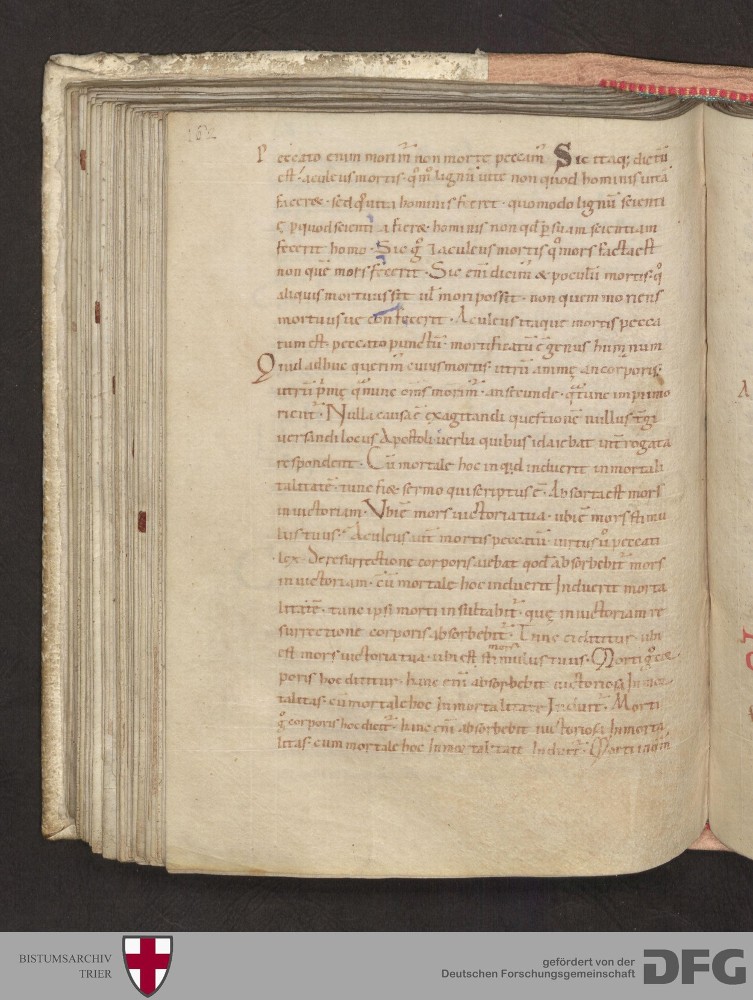 162
Peccato enim morim̄ non morte peccam̄. Sic itaq; dictū
est. aculeus mortis. qm̄ lignū uitę non quod hominis uita
faceret. sed q uita hominis fieret. quomodo lignū scienti
ę p quod scientia fieret hominis non qd p suam scientiam
fecerit homo. Sic g̊ & aculeus mortis q mors facta est
non quē mors fecerit. Sic em̄ dicim̄ & poculū mortis. q̊
aliquis mortuus sit ul mori possit. non quem moriens
mortuus ue confecerit. Aculeus itaque mortis pecca
tum est. peccato punctū mortificatū ē genus humanum
Quid adhuc querim̄ cuius mortis. utrū animę an corporis.
utrū primę qua nunc om̄s morim̄. an secundę. qua tunc
rient. Nulla causa ē exagitandi questionē nullus
uersandi locus Apostoli uerba quibus id agebat interrogata
respondent. Cū mortale hoc inquid induerit inmortali
talitatē. tunc fiet sermo qui scriptus ē. Absorta est mors
in uictoriam. Vbi ē mors uictoria tua. ubi ē mors stimu
lus tuus. Aculeus aut mortis peccatū. uirtus ů peccati
lex. De resurrectione corporis agebat quod absorbebit mors
in uictoriam. cū mortale hoc induerit Induerit morta
litatē. tunc ipsi morti insultabit. quę in uictoriam re
surrectione corporis absorbebit. Tunc ei dicitur ubi
est mors uictoria tua. ubi est mors stimulus tuus. Morti g̊ cor
poris hoc dicitur. hanc em̄ absorbebit uictoriosa Inmor
talitas. cū mortale hoc Inmortalitate Induit. Morti
g̊ corporis hoc dicit. hanc em̄ absorbebit uictoriosa Inmorta
litas. cum mortale hoc Inmortalitate Induet. Morti
BISTUMSARCHIV
TRIER
gefördert von der
Deutschen Forschungsgemeinschaft
DFG